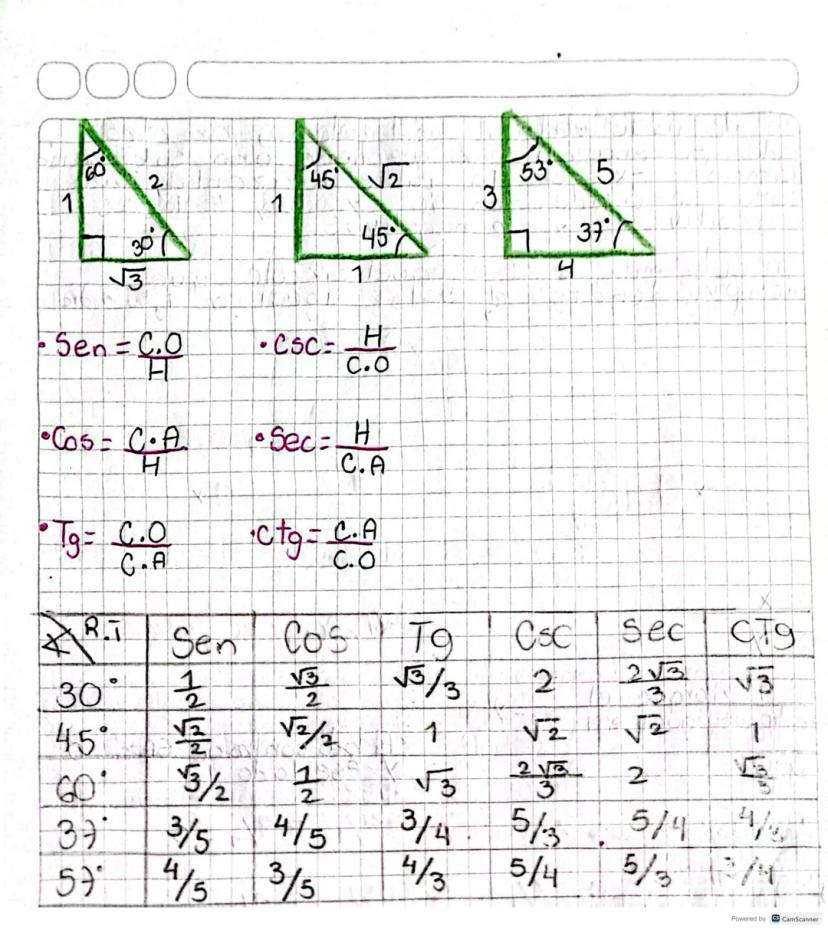 60° 2 1 30° √3
45° √2 1 45° 1
53° 5 3 37° 4
• Sen = C.O/H • Csc = H/C.O
• Cos = C.A/H • Sec = H/C.A
• Tg = C.O/C.A • Ctg = C.A/C.O
∢ R.T Sen Cos Tg Csc Sec CTg
30° 1/2 √3/2 √3/3 2 2√3/3 √3
45° √2/2 √2/2 1 √2 √2 1
60° √3/2 1/2 √3 2√3/3 2 √3/3
37° 3/5 4/5 3/4 5/3 5/4 4/3
57° 4/5 3/5 4/3 5/4 5/3 3/4
Powered by CS CamScanner